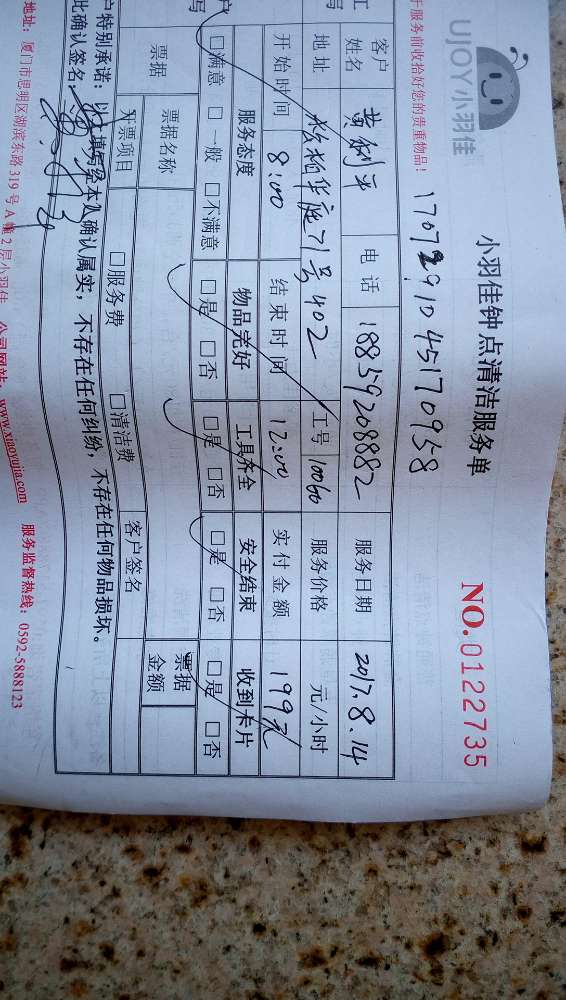 UJOY小羽佳
小羽佳钟点清洁服务单
NO.0122735
于服务前收拾好您的贵重物品!
1707291045170958
客户姓名 黄树平 电话 18859208882 服务日期 2017.8.14
地址 松柏华庭71号402 工号 10060 服务价格 元/小时
开始时间 8:00 结束时间 12:00 实付金额 199元
服务态度 物品完好 工具齐全 安全结束 收到卡片
□满意 □一般 □不满意 □是 □否 □是 □否 □是 □否 □是 □否
票据 票据名称 票据金额
开票项目 □服务费 □清洁费 客户签名
户特别承诺:以上填写经本人确认属实,不存在任何纠纷,不存在任何物品损坏。
此确认签名:
地址:厦门市思明区湖滨东路319号A幢2层小羽佳 公司网站:www.xiaoyujia.com 服务监督热线:0592-5888123